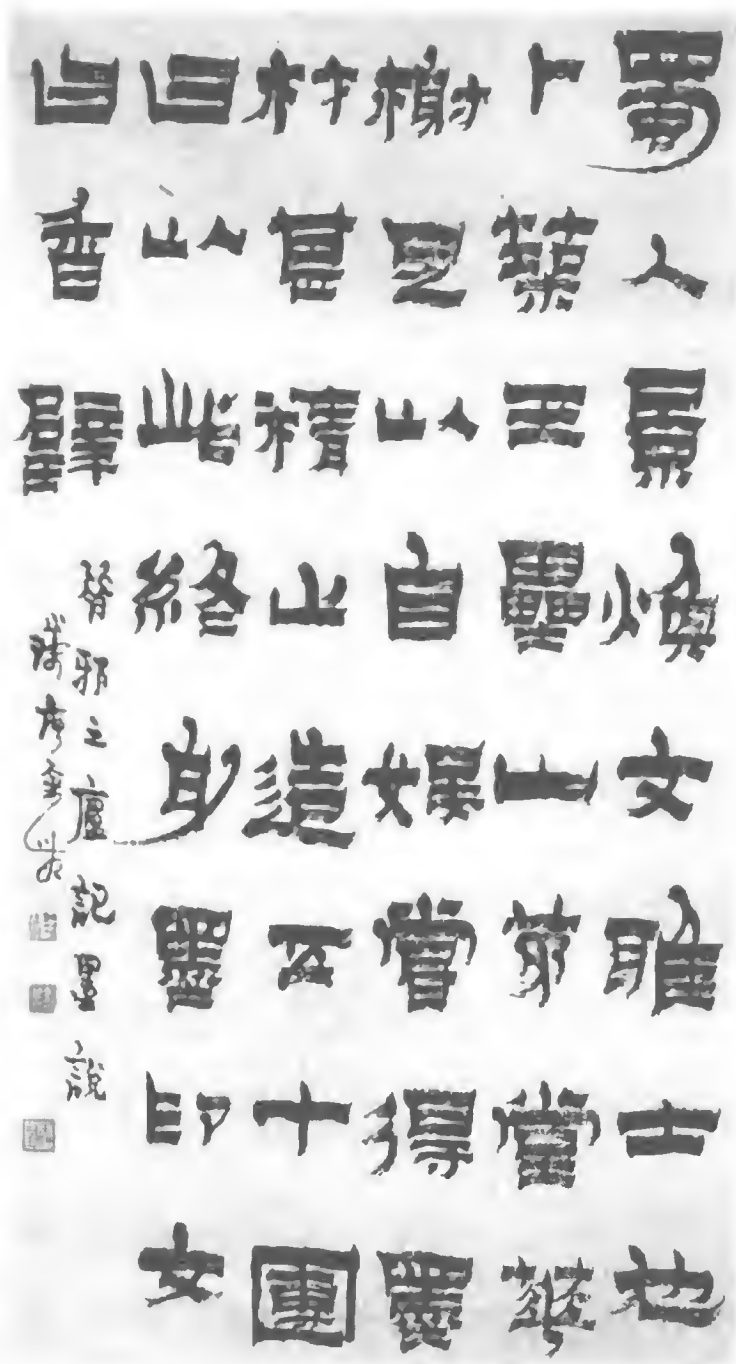 蜀人景煥文雅士也
卜築玉壘山茅堂華
榭足以自娛嘗得墨
材甚精止造五十團
曰以此終身墨印文
曰香璧
昔邪之廬記墨說